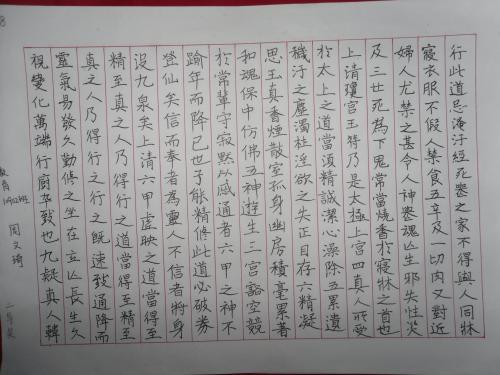 行此道忌淹汙經死喪之家不得與人同牀
寢衣服不假人禁食五辛及一切肉又對近
婦人尤禁之甚令人神喪魂亡生邪失性災
及三世死為下鬼常當燒香於寢牀之首也
上清瓊宮玉符乃是太極上宮四真人所受
於太上之道當須精誠潔心澡除五累遺
穢汙之塵濁杜淫欲之失正目存六精凝
思玉真香煙散室孤身幽房積毫累著
和魂保中仿佛五神遊生三宮豁空競
於常輩守寂默以感通者六甲之神不
踰年而降己也子能精修此道必破券
登仙矣信而奉者為靈人不信者將身
沒九泉矣上清六甲虛映之道當得至
精至真之人乃得行道當得至精至
真之人乃得行之行之既速致通降而
靈氣易發久勤修之坐在立亡長生久
視變化萬端行廚卒致也九疑真人韓
教育1902班 周文琦